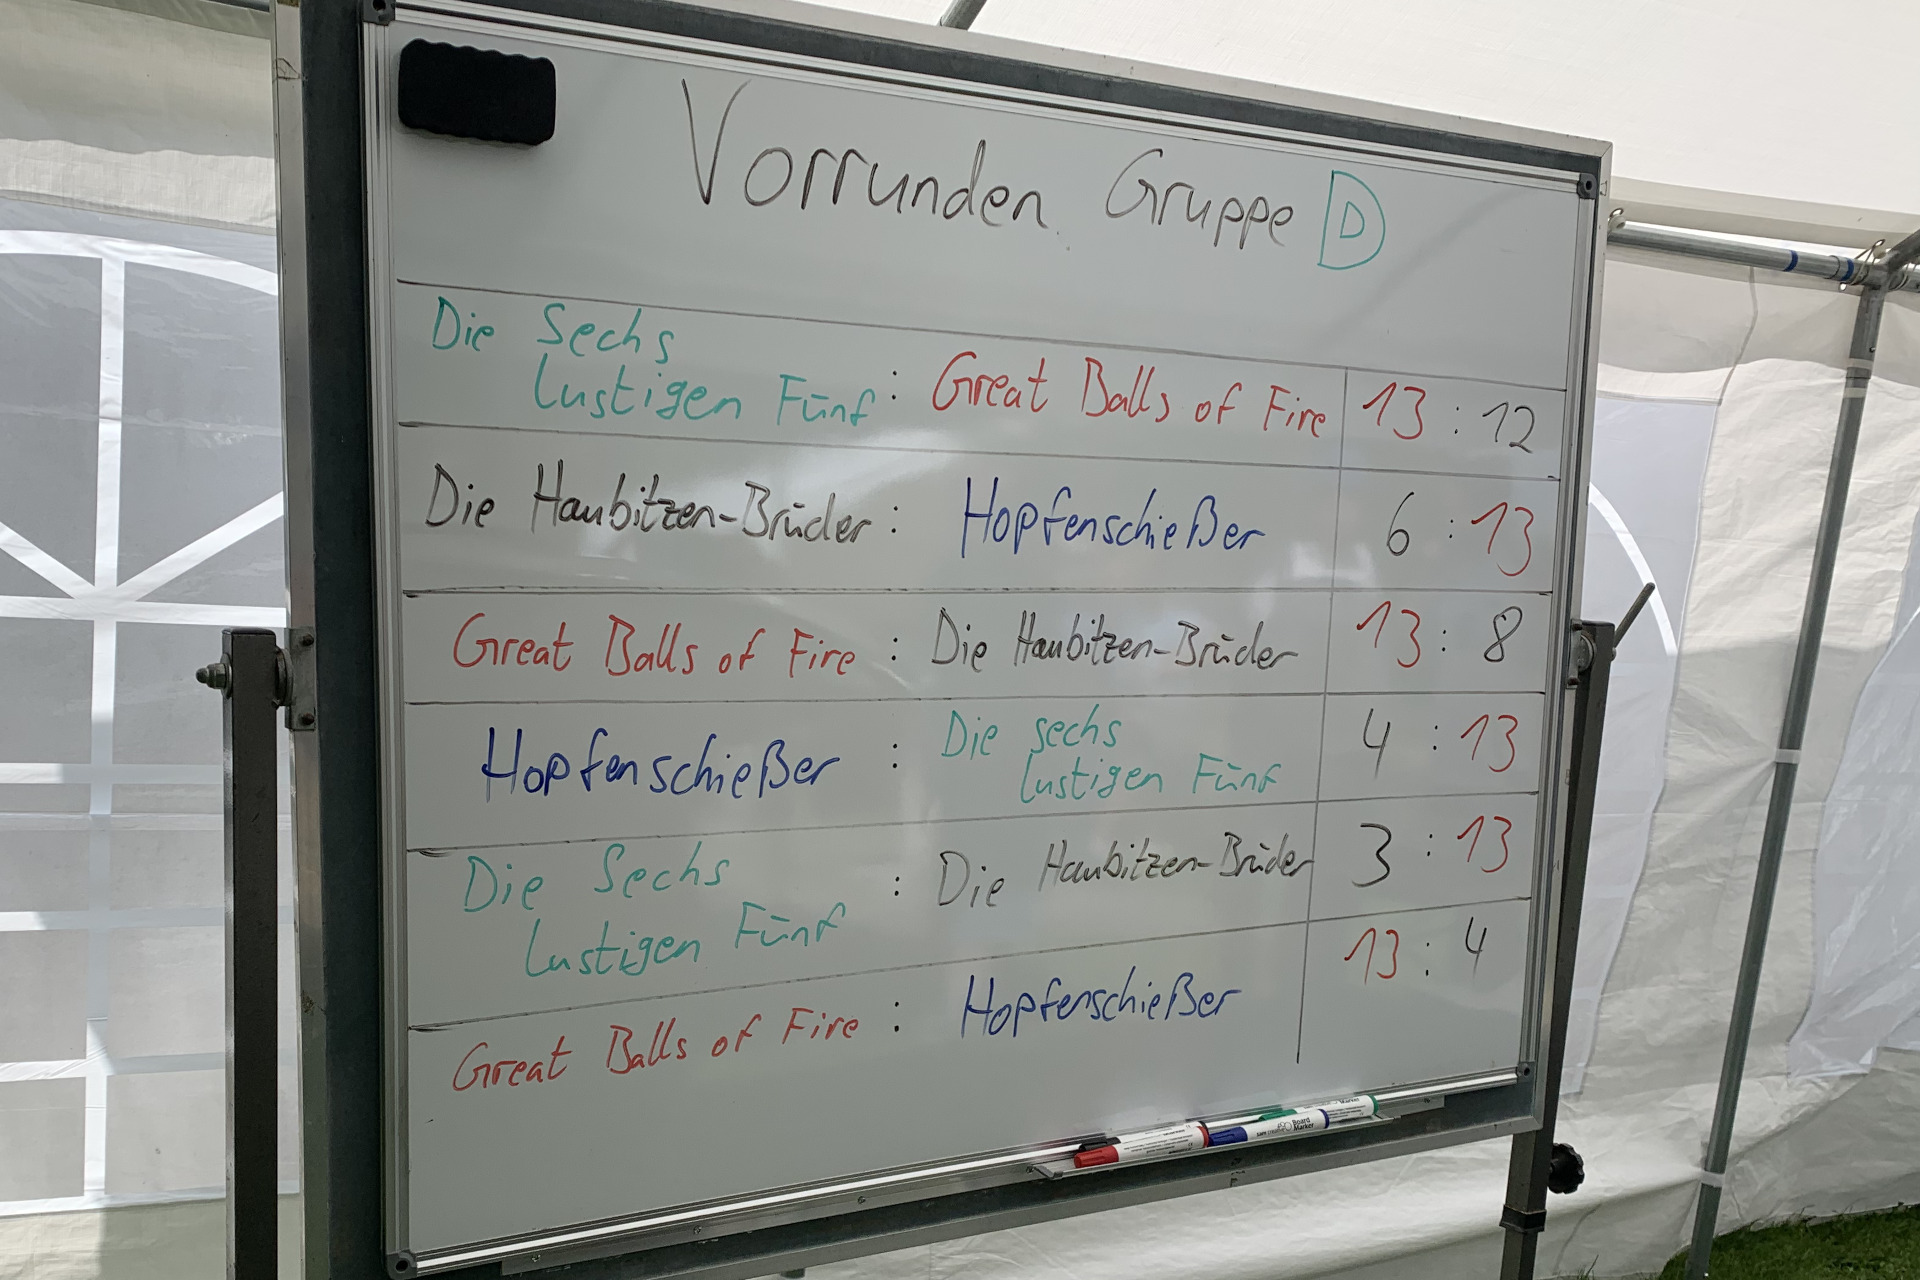 Vorrunden Gruppe D
Die Sechs
lustigen Fünf : Great Balls of Fire 13 : 12
Die Haubitzen-Brüder : Hopfenschießer 6 : 13
Great Balls of Fire : Die Haubitzen-Brüder 13 : 8
Hopfenschießer : Die sechs
lustigen Fünf 4 : 13
Die Sechs
lustigen Fünf : Die Haubitzen-Brüder 3 : 13
Great Balls of Fire : Hopfenschießer 13 : 4
Board
Marker